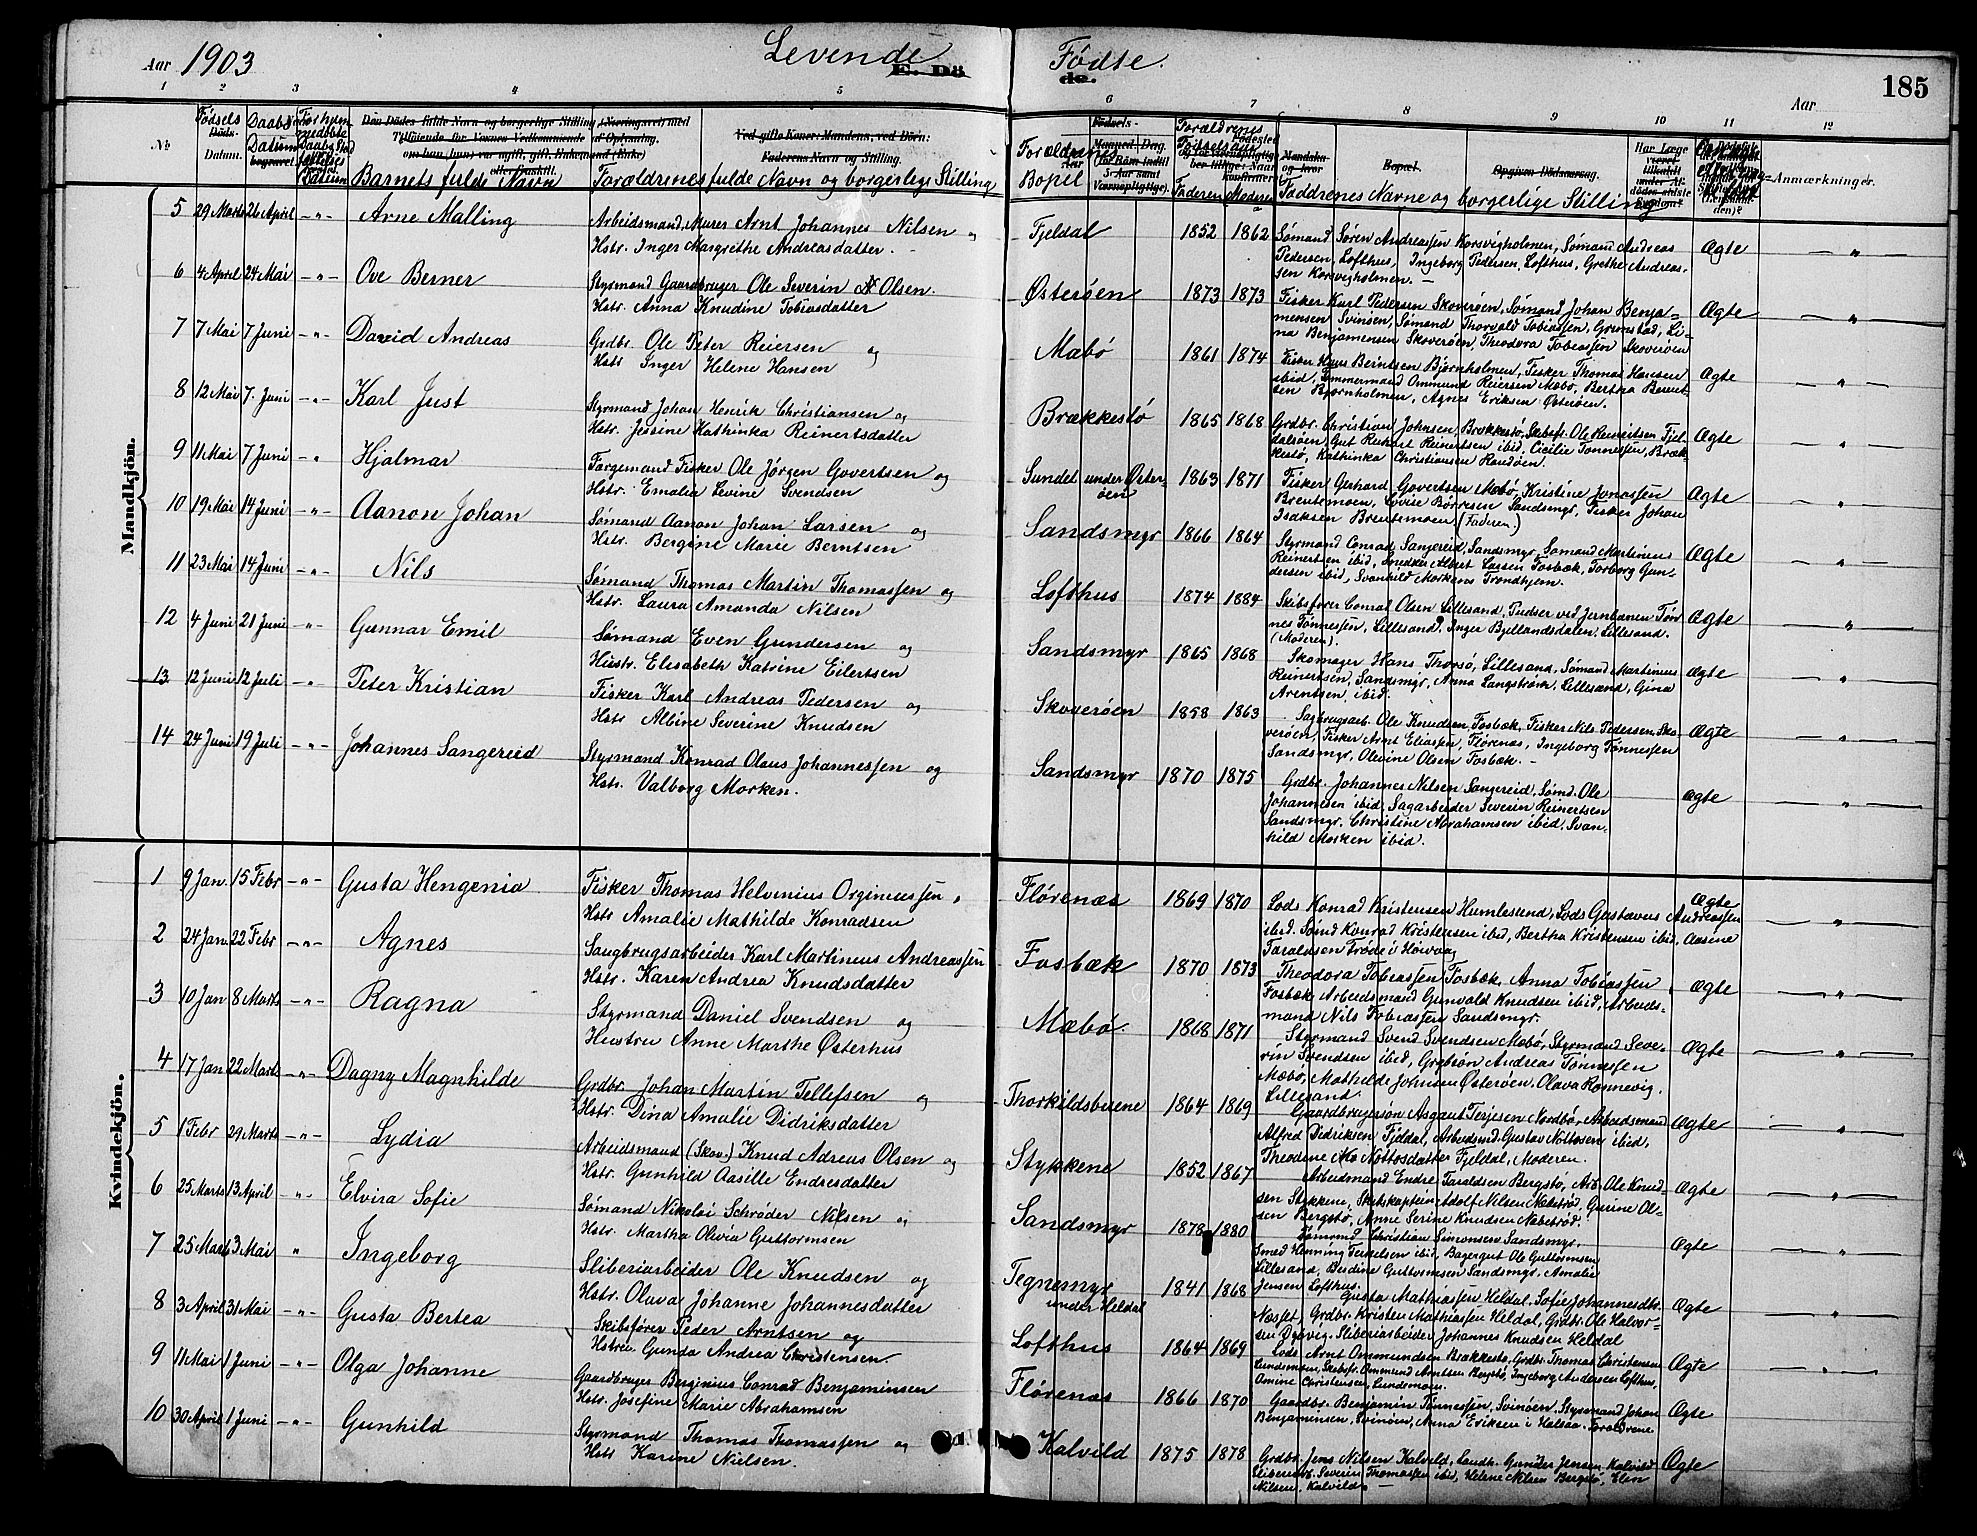 Aar 1903 Levende Fødte. 185
E. Dö de. Aar
1 2 3 4 5 6 7 8 9 10 11 12
No Fødsels Datum. Daabs Datum Barnets fulde Navn Forældrenes fulde Navn og borgerlige Stilling Forældrenes Bopel Forældrenes Fødselsaar Faderen Moderen Faddrenes Navne og borgerlige Stilling Anmærkninger.
Mandkjön.
5 29 Marts 26 April -"- Arne Malling Arbeidsmand, Murer Arnt Johannes Nilsen og
Hstr. Inger Margrethe Andreasdatter.
Fjeldal 1852 1862 Sømand Søren Andreassen Korsvigholmen, Sømand Andreas
Pedersen, Lofthus, Ingeborg Pedersen, Lofthus, Grethe Andreas-
sen Korsvigholmen. Ægte "
6 4 April 24 Mai -"- Ove Berner Styrmand Gaardbruger Ole Severin Olsen.
Hstr. Anna Knudine Tobiasdatter
Østerøen 1873 1873 Fisker Karl Pedersen Skoverøen, Sømand Johan Benja-
mensen Svinøen, Sømand Thorvald Tobiassen, Grimstad, Li-
na Benjamensen Skoverøen, Theodora Tobiassen Skoverøen Ægte "
7 7 Mai 7 Juni -"- David Andreas Grdbr. Ole Peter Reiersen og
Hstr Inger Helene Hansen
Mæbø 1861 1874 Fisker Hans Berntsen Bjørnholmen, Fisker Thomas Hansen
ibid, Tømmermand Ommund Reiersen Mæbø, Bertha Bernt-
sen Bjørnholmen, Agnes Eriksen Østerøen. Ægte "
8 12 Mai 7. Juni -"- Karl Just Styrmand Johan Henrik Christiansen og
Hstr. Jessine Kathinka Reinertsdatter
Brækkestø 1865 1868 Grdbr. Christian Johnsen, Brækkestø, Skibsfr. Ole Reinertsen Fjel-
dalsøen, Gut Reinert Reinertsen ibid, Cicilie Tønnessen, Bræk-
kestø, Kathinka Christiansen Randøen. Ægte "
9 11 Mai 7 Juni -"- Hjalmar Færgemand Fisker Ole Jørgen Govertsen og
Hstr. Emalia Levine Svendsen
Sundet under Øster-
øen 1863 1871 Fisker Gerhard Govertsen Mæbø, Kristine Jonassen
Brentemoen, Lovise Børresen Sandsmyr, Fisker Johan
Isaksen Brentemoen (Faderen.) Ægte "
10 19 Mai 14 Juni -"- Aanon Johan Sømand Aanon Johan Larsen og
Hstr. Bergine Marie Berntsen
Sandsmyr 1866 1864 Styrmand Conrad Sangereid, Sandsmyr, Sømand Martinius
Reinertsen ibid, Snedker Albert Larsen Fosbæk, Torborg Gun-
dersen ibid, Svanhild Morkens Trondhjem. Ægte "
11 23 Mai 14 Juni -"- Nils Sømand Thomas Martin Thomassen og
Hstr. Laura Amanda Nilsen
Lofthus 1874 1884 Skibsfører Conrad Olsen Lillesand, Pudser ved Jernbanen Tøn-
nes Tønnessen, Lillesand, Inger Bjellandsdalen, Lillesand.
(Moderen). Ægte "
12 4 Juni 21 Juni -"- Gunnar Emil Sømand Even Gundersen og
Hustr. Elisabeth Katrine Eilertsen
Sandsmyr 1865 1868 Skomager Hans Thorsø, Lillesand, Sømand Martinius
Reinertsen, Sandsmyr, Anna Langstrøm, Lillesand, Gina
Arentsen ibid. Ægte "
13 12 Juni 12 Juli -"- Peter Kristian Fisker Karl Andreas Pedersen og
Hstr Albine Severine Knudsen
Skoverøen 1858 1863 Sagbrugsarb. Ole Knudsen, Fosbæk, Fisker Nils Pedersen, Sko-
verøen, Fisker Arnt Eliassen, Flørenæs, Ingeborg Tønnessen
Sandsmyr, Olevine Olsen Fosbæk. Ægte "
14 24 Juni 19 Juli -"- Johannes Sangereid Styrmand Konrad Olaus Johannessen og
Hstr. Valborg Morken.
Sandsmyr 1870 1875 Grdbr. Johannes Nilsen Sangereid, Sømd. Ole
Johannesen ibid, Sagarbeider Severin Reinertsen
Sandsmyr. Christine Abrahamsen ibid, Svan-
hild Morken ibid. Ægte "
Kvindekjön.
1 9 Jan. 15 Febr -"- Gusta Hengenia Fisker Thomas Helvinius Orginiussen,
Hstr Amalie Mathilde Konradsen
Flørenæs 1869 1870 Lods Konrad Kristensen Humlesund, Lods Gustavus Andreassen
ibid. Sømd Konrad Kristensen ibid, Bertha Kristensen ibid, Aasine
Taraldsen Trøde i Høivaag Ægte "
2 24 Jan. 22 Febr -"- Agnes Saugbrugsarbeider Karl Martinius Andreassen
Hstr. Karen Andrea Knudsdatter
Fosbæk 1870 1873 Theodora Tobiassen Fosbæk, Anna Tobiassen
Fosbæk, Arbeidsmand Gunvald Knudsen ibid, Arbeids-
mand Nils Tobiassen Sandsmyr. Ægte "
3 10 Jan 8 Marts -"- Ragna Styrmand Daniel Svendsen og
Hustru Anne Marthe Østerhus
Mæbø. 1868 1871 Styrmand Svend Svendsen Mæbø, Styrmand Seve-
rin Svendsen ibid, Grdbrsøn Andreas Tønnessen
Mæbø, Mathilde Johnsen Østerøen, Olava Rønnevig,
Lillesand. Ægte "
4 17 Jan 22 Marts -"- Dagny Magnhilde Grdbr. Johan Martin Tellefsen og
Hstr. Dina Amalie Didriksdatter
Thorkildsbuene 1864 1869 Gaardbrugersøn Asgaut Terjesen Nordbø, Arbeidsmand
Alfred Didriksen, Fjeldal, Arbeidsmd. Gustav Nottosen ibid,
Theodine Nottosdatter Fjeldal, Moderen. Ægte "
5 1 Febr 29 Marts -"- Lydia Arbeidsmand (Skov.) Knud Adreas Olsen og
Hstr. Gunhild Aasille Endresdatter
Stykkene 1852 1867 Arbeidsmand Endre Taraldsen Bergstø, Arb. Ole Knud-
sen Stykkene, Skibskaptein Adolf Nilsen Nabetrød, Gurine Ol-
sen Bergstø, Anne Serine Knudsen Nabetrød. Ægte "
6 25 Marts 13 April -"- Elvira Sofie Sømand Nikolai Schrøder Nilsen og
Hstr. Martha Olivia Guttormsen
Sandsmyr 1878 1880 Sømand Christian Simonsen Sandsmyr,
Smed Henning Terkelsen ibid, Bagergut Ole Guttormsen
Lillesand, Berdine Guttormsen Sandsmyr, Amalie
Jensen Lofthus. Ægte "
7 25 Marts 3 Mai " Ingeborg Sliberiarbeider Ole Knudsen og
Hstr. Olava Johanne Johannesdatter
Tegnemyr
under Heldal 1841 1868 Gusta Mathiassen Heldal, Sofie Johannesdtr.
Næsset, Grdbr. Kristen Mathiassen Heldal, Grdbr. Ole Halvor-
sen Dybvig, Sliberiarbeider Johannes Knudsen Heldal Ægte "
8 3 April 31 Mai -"- Gusta Bertea Skibsfører Peder Arntsen og
Hstru. Gunda Andrea Christensen.
Lofthus 1864 1869 Lods Arnt Ommundsen Brækkestø, Grdbr. Thomas Christensen
Lundemoen, Skibsfr. Ommund Arntsen Bergstø, Ingeborg Andersen Lofthus,
Amine Christensen, Lundemoen. Ægte "
9 11 Mai 1 Juni -"- Olga Johanne Gaardbruger Berginius Conrad Benjaminsen
Hstr. Josefine Marie Abrahamsen
Flørenæs 1866 1870 Gaardbr. Benjamin Tønnessen, Svinøen, Styrmand Johan
Benjaminsen, Svinøen, Anna Eriksen i Halsaa. Forældrene. Ægte
10 30 April 1 Juni -"- Gunhild Styrmand Thomas Thomassen og
Hstr Karine Nielsen.
Kalvild 1875 1878 Grdbr. Jens Nilsen Kalvild, Landh. Gunder Jensen Kalvild
Sliberiarb. Severin Thomassen ibid, Helene Nilsen Bergstø, Elin
Nilsen, Kalvild. Ægte